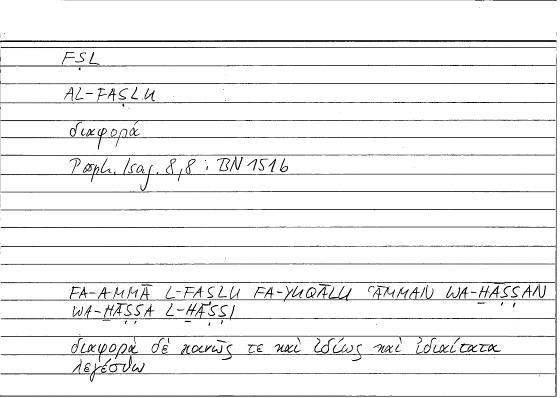 FṢL
AL-FAṢLU
διαφορά
Porph. Isag. 8,8 : BN 151b
FA-AMMĀ L-FAṢLU FA-YUQĀLU ʿĀMMAN WA-H̱ĀṢṢAN
WA-H̱ĀṢṢA L-H̱ĀṢṢI
διαφορὰ δὲ κοινῶς τε καὶ ἰδίως καὶ ἰδιαίτατα
λεγέσθω